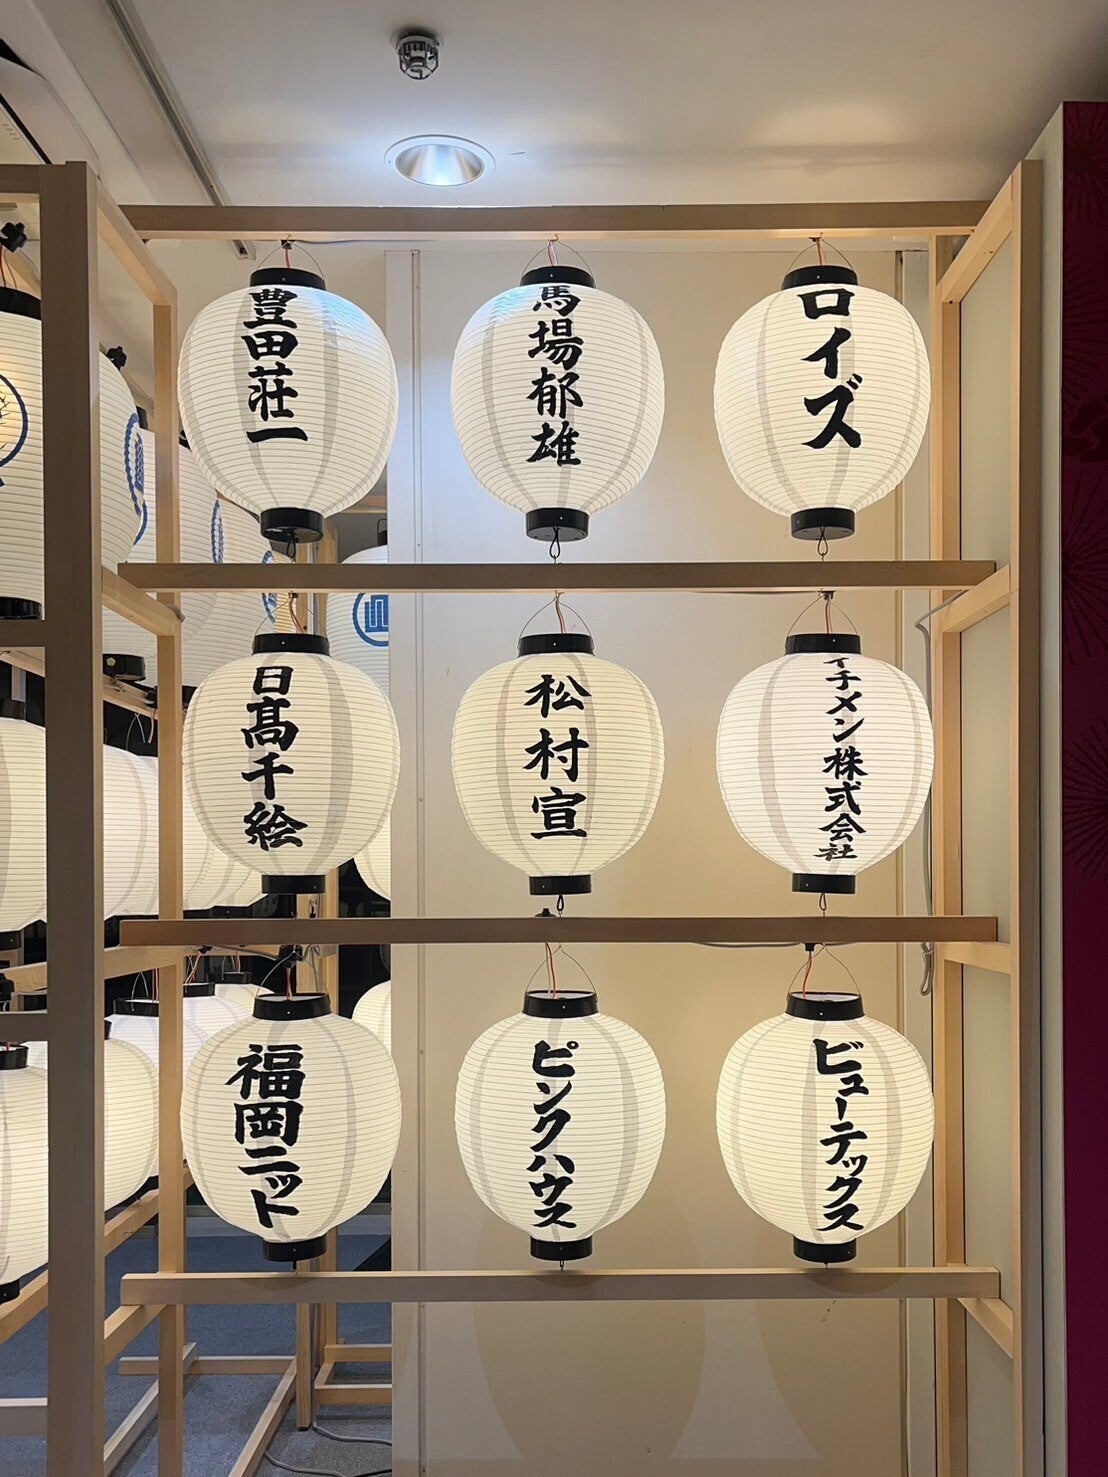 ロイズ
馬場郁雄
豊田荘一
イチメン株式会社
松村宣
日髙千絵
ビューテックス
ピンクハウス
福岡ニット